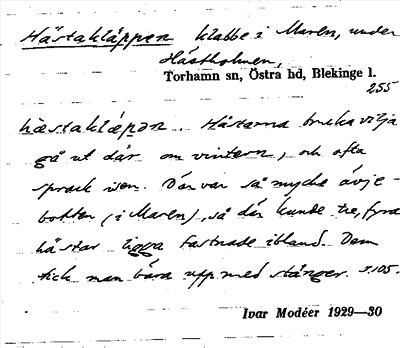 Hästakläppen klabbe i Maren, under
Hästholmen,
Torhamn sn, Östra hd, Blekinge l.
255
hæstaklæpən. Hästarna bruka vilja
gå ut där om vintern, och ofta
sprack isen. Där var så mycke ävje-
botten (i Maren), så där kunde tre, fyra
hästar ligga fastnade ibland. Dem
fick man bära upp med stänger. s. 105.
Ivar Modéer 1929—30